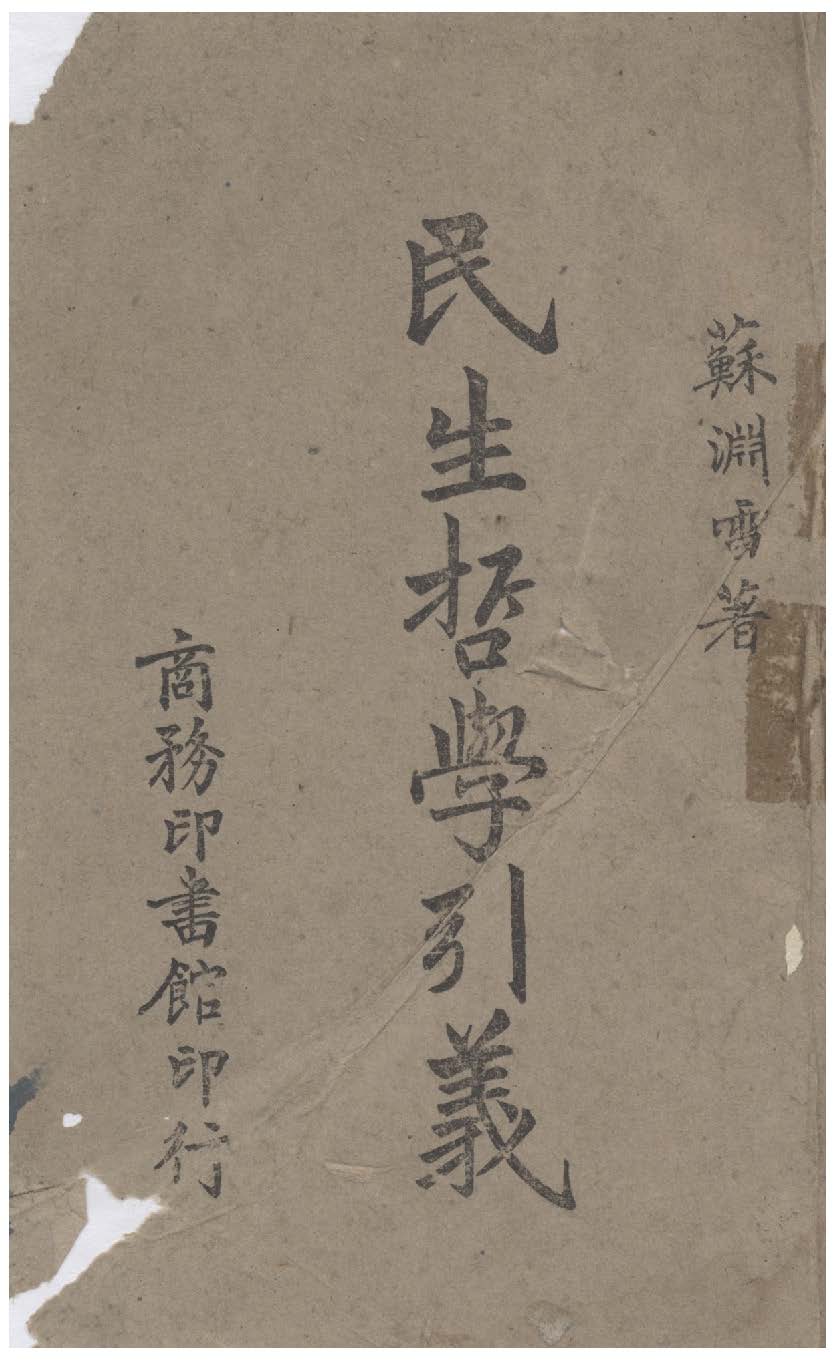 蘇淵雷著
民生哲學引義
商務印書館印行